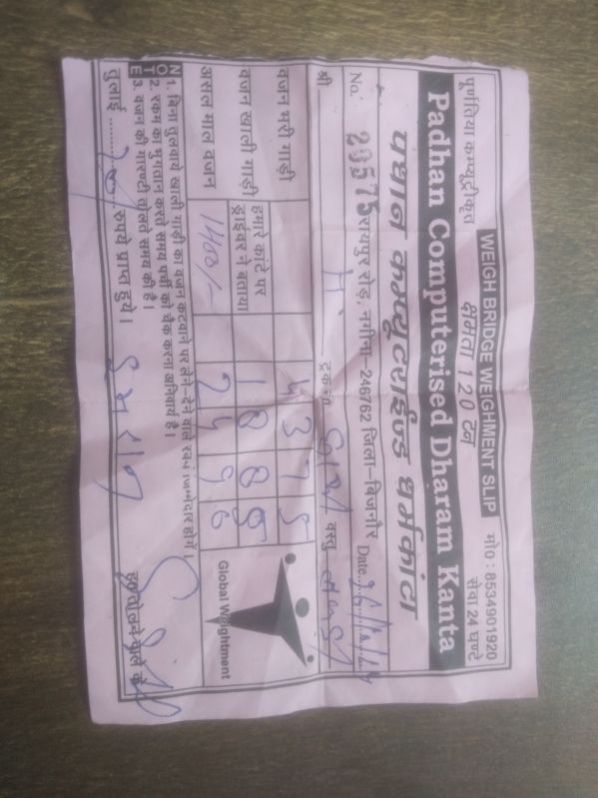 WEIGH BRIDGE WEIGHMENT SLIP
पूर्णतया कम्प्यूट्रीकृत क्षमता 120 टन मो० : 8534901920
सेवा 24 घण्टे
Padhan Computerised Dharam Kanta
पधान कम्प्यूटराईज्ड धर्मकांटा
रायपुर रोड़, नगीना-246762 जिला-बिजनौर
No. 20575 Date
श्री ट्रक नं० वस्तु
हमारे कांटे पर
ड्राईवर ने बताया
वजन भरी गाड़ी 4375
वजन खाली गाड़ी 1885
असल माल वजन 1400/- 2496
Global Weightment
NOTE
1. बिना तुलवाये खाली गाड़ी का वजन कटवाने पर लेन-देन वाले स्वयं जिम्मेदार होंगे।
2. रकम का भुगतान करते समय पर्ची को चेक करना अनिवार्य है।
3. वजन की गारण्टी तोलते समय की है।
तुलाई रुपये प्राप्त हुये। ह० तोलने वाले के